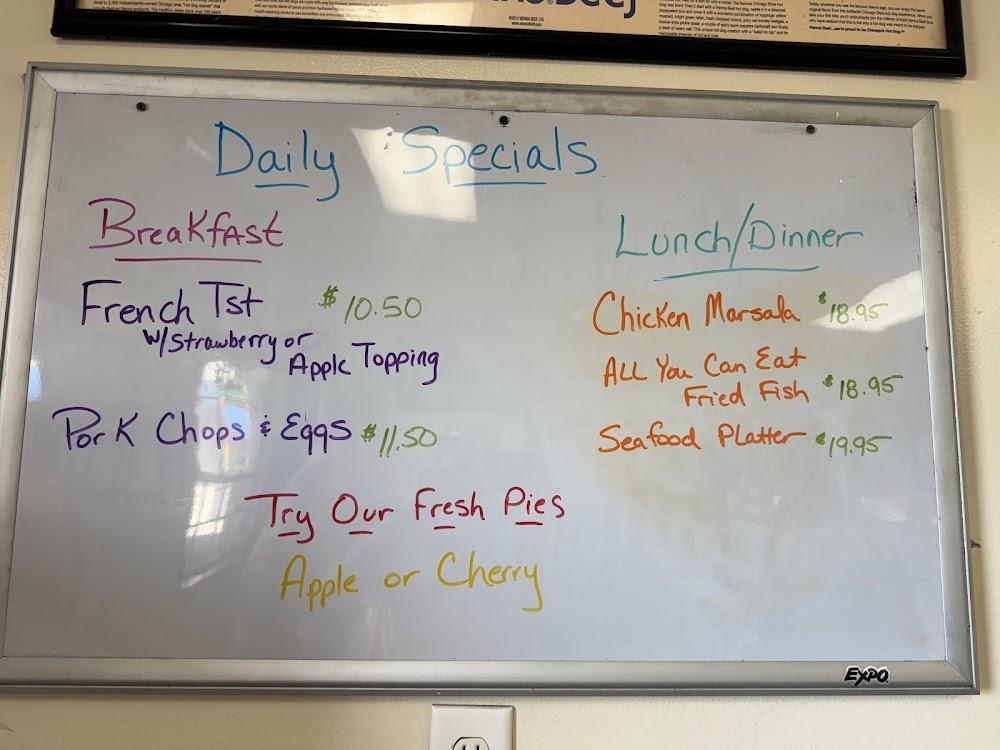 Beef
©2012 VIENNA BEEF LTD.
Daily Specials
Breakfast
French Tst $10.50
w/Strawberry or
Apple Topping
Pork Chops & Eggs $11.50
Lunch/Dinner
Chicken Marsala $18.95
All You Can Eat
Fried Fish $18.95
Seafood Platter $19.95
Try Our Fresh Pies
Apple or Cherry
EXPO